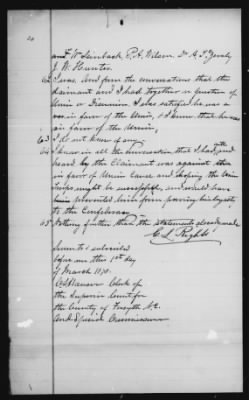 and F. W. Leinbach, P. A. Wilson, Dr. A. T. Zevely
J. W. Hunter.
62 I was. And from the conversations that the
claimant and I had together in question of
Union or Disunion I was satisfied he was a
man in favor of the Union, & I know that he was
in favor of the Union,
63 I do not know of any
64 I know in all the conversation that I had with
heard by the Claimant was against the
in favor of Union Cause and hoping the Union
Troops might be successful, and would have
been prevented him from proving his loyalty
to the Confederacy
65 Nothing further than the statements above made
C. L. Rights
Sworn to & subscribed
before me this 1st day
of March 1870.
Clerk of
the Superior Court for
the County of Forsyth N.C.
And Special Commissioner